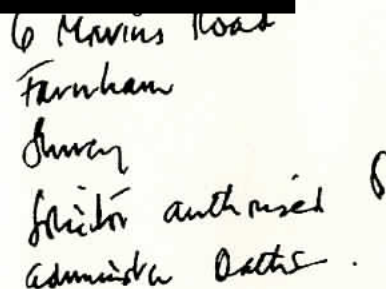 6 Road
Farnham
Surrey
Solicitor authorised
administer Oaths.